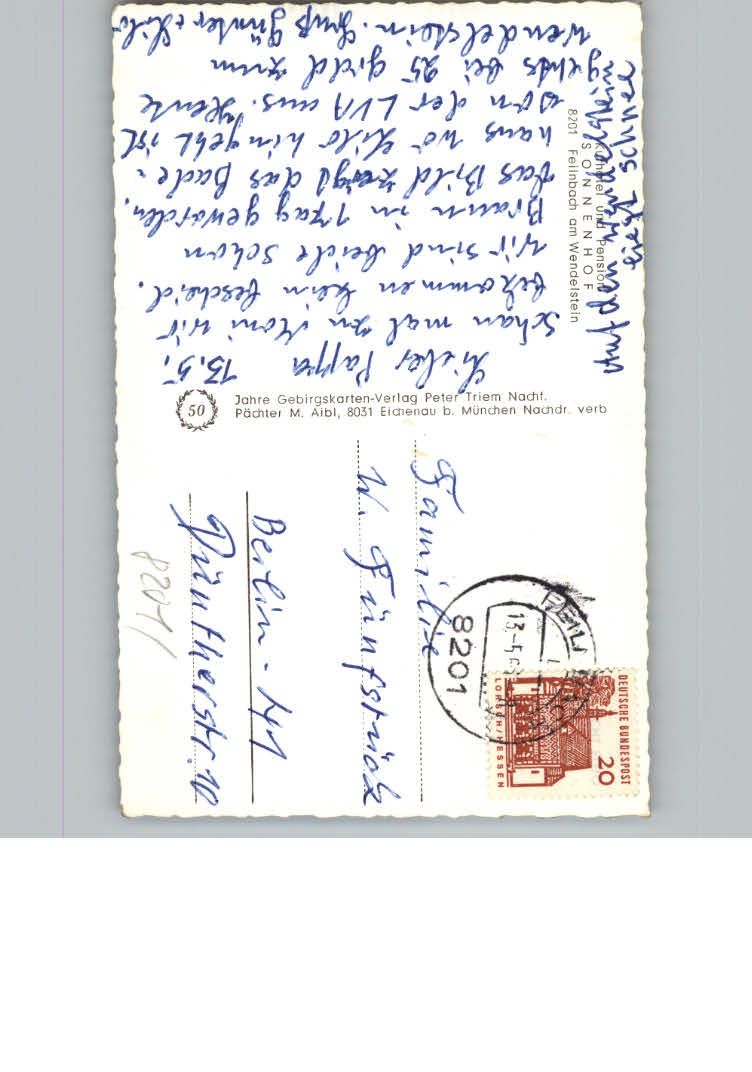 Lieber Pappa 13.5.
schan mal zu Moni wir
bekommen kein bescheid.
Wir sind beide schon
Braun in 1 Tag geworden.
Das Bild zeigt das Bade-
haus wo Lilo hingeht ist
von der LVA aus. Heute
gehts bei 25 grad zum
Wendelstein. Gruß Günter + Lilo
Auf dem Wendelstein
liegt schnee
Kurhotel und Pension
SONNENHOF
8201 Feilnbach am Wendelstein
50 Jahre Gebirgskarten-Verlag Peter Triem Nachf.
Pächter M. Aibl, 8031 Eichenau b. München Nachdr. verb
DEUTSCHE BUNDESPOST
20
LORSCH/HESSEN
FEILN
13.-5.6
8201
Familie
W. Fünfstück
Berlin-41
Düntherstr. 10
8201/